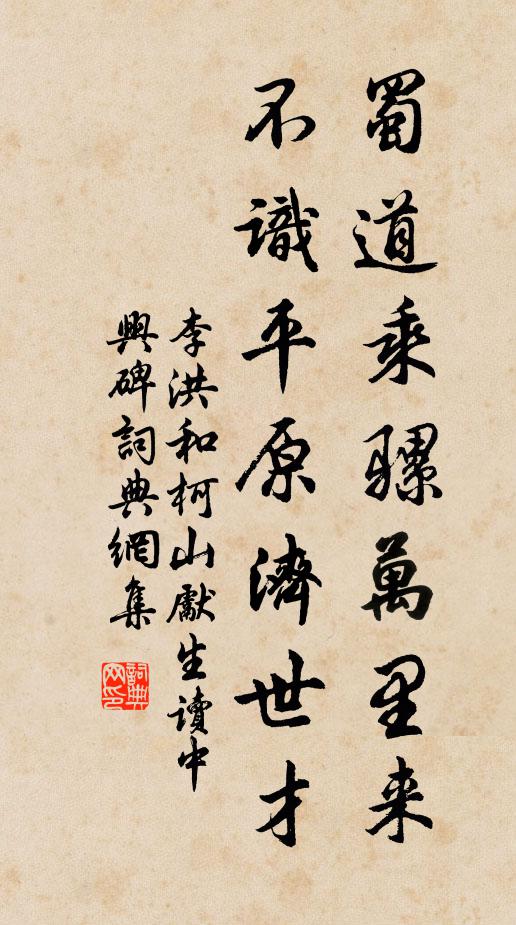 蜀道乘騾萬里来
不識平原濟世才
李洪和柯山獻生讀中
興碑詞典網集
詞典网印